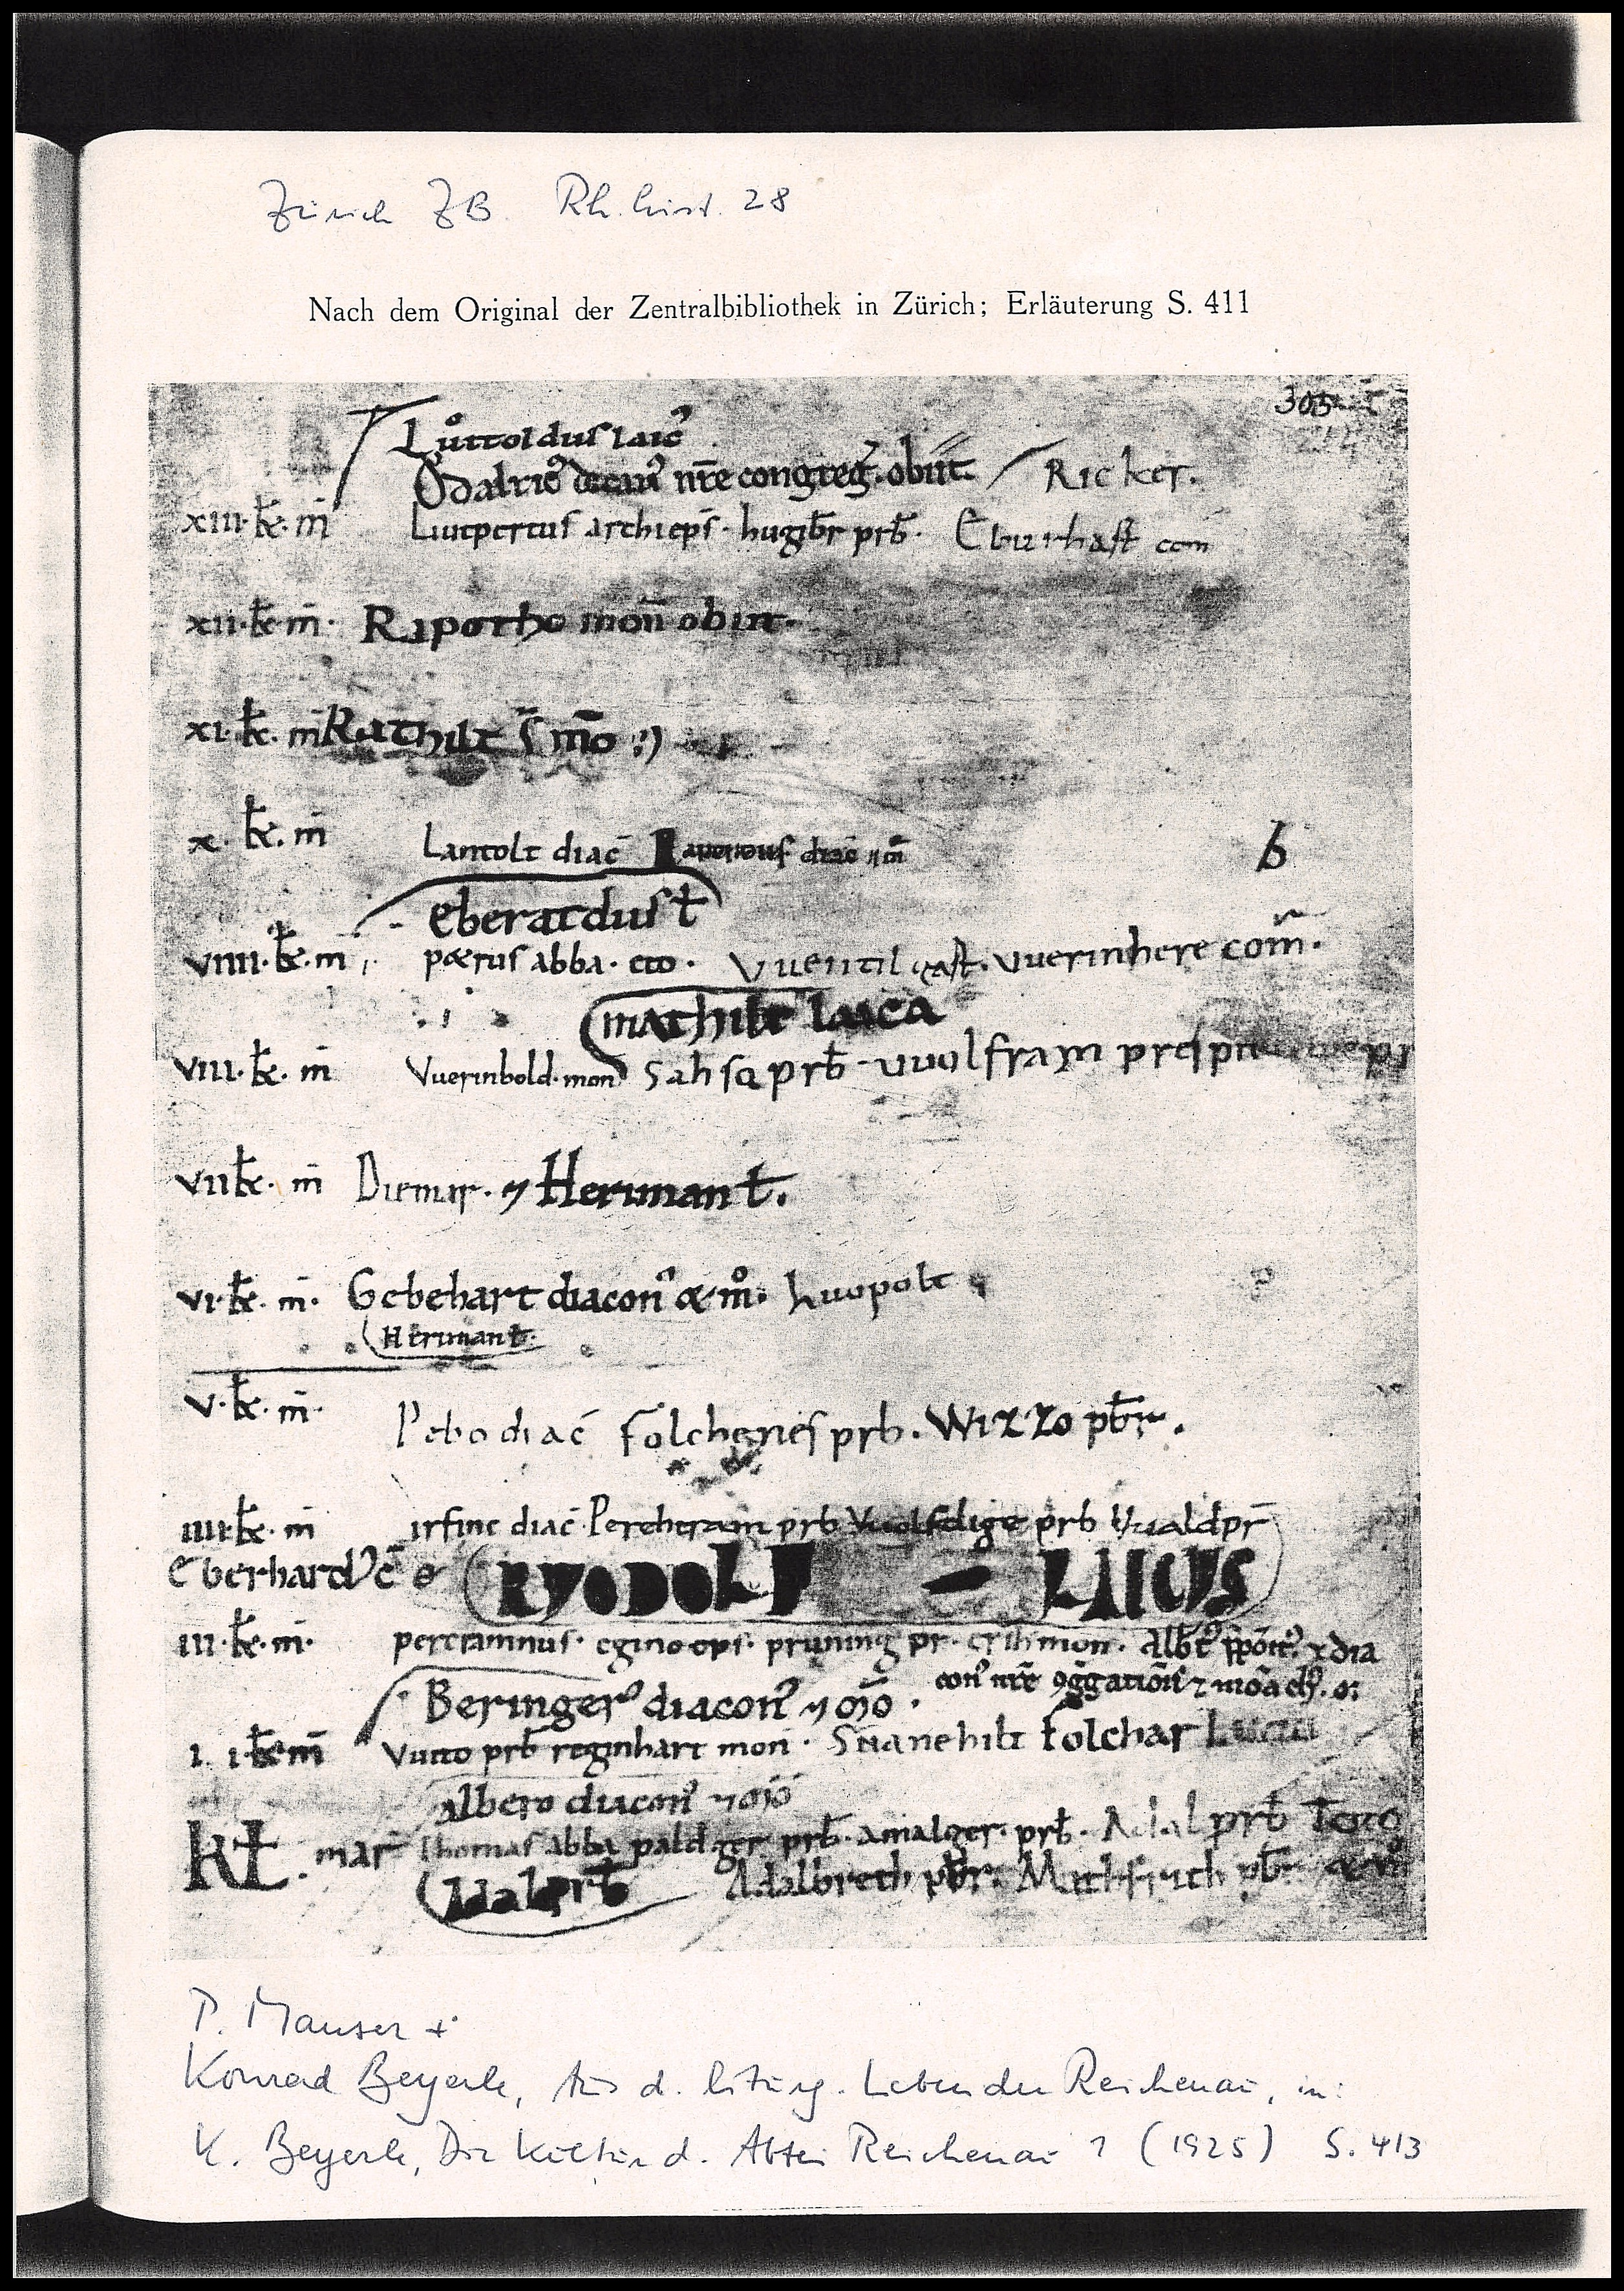 Zürich ZB. Rh. hist. 28
Nach dem Original der Zentralbibliothek in Zürich; Erläuterung S. 411
305
Lůttoldus laic᷒
Ŏdalric᷒ decan᷒ nr̄e congreg̅. obiit Ricker.
xiii·kł·m̄ Liutpertus archiep̄s· hugib̄r prb̄· Eburhast com
xii·kł·m̄· Ripotho mon̄ obiit·
xi·kł·m̄ Rathilt s̄ m̄o
x·kł·m̄ Lantolt diac̄ diac̄
b
Eberardus ł
viiii·kł·m̄ petrus abba· Vuentil Vuerinhere com̄·
mathilt laica
viii·kł·m̄ Vuerinbold·mon̄ Sahso prb̄· uuolfram
vii kł·m̄ Diemar· ⁊ Heriman ł.
vi·kł·m̄· Gebehart diacon᷒ & m̊· Luopolt
Heriman ł·
v·kł·m̄· Pebo diac̄ folchenes prb· Wizzo pb̄r·
iiii·kł·m̄ irfinc diac̄ Perchtram prb prb Vuald pr̄
eberhard᷒ c̄
RVODOLF = LAICUS
iii·kł·m̄· pertrannus· egino eps· pruning pr· mon· Alb̄t᷒ ⁊ dia
con᷒ nr̄e ꝯg̅gation̄is ⁊ mōach᷒
Beringer᷒ diacon᷒ ⁊ m̄o·
i·i·kł·m̄ Vutto prb̄ reginhart mon̄· Suanehilt folchar
albero diacon᷒ ⁊ m̄o
Kł· mar̄ thomas abba paldger prb̄· amalger· prb̄· Adal prb̄
Udalprb̄ Adalbreth pb̄r· pb̄r
P. Manser +
Konrad Beyerle, Aus d. liturg. Leben der Reichenau, in:
K. Beyerle, Die Kultur d. Abtei Reichenau 1 (1925) S. 413